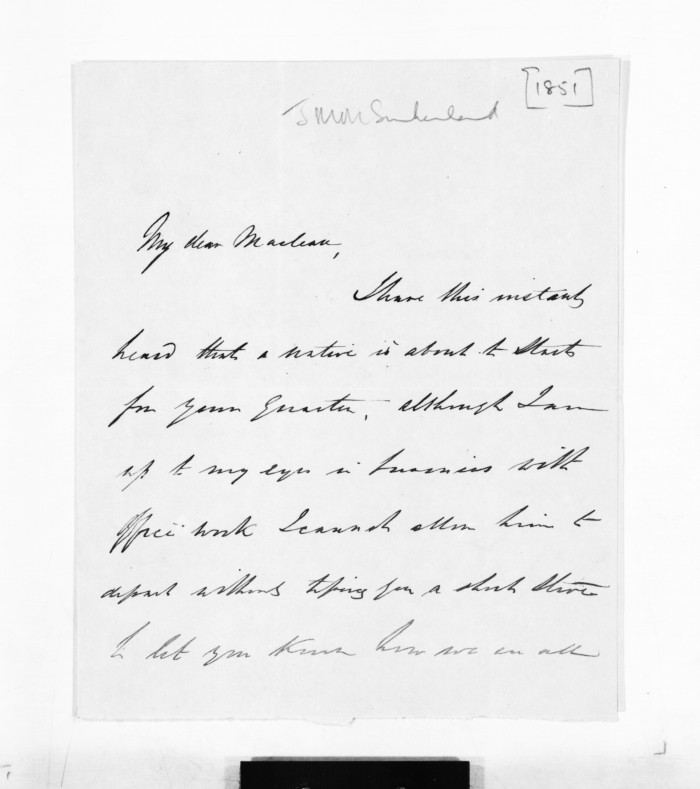 [1851]
Sutherland
My dear Maclean,
I have this instant
heard that a native is about to start
for your quarter, although I am
up to my eyes in business with
office work I cannot allow him to
depart without tiping you a short
to let you know how we are all